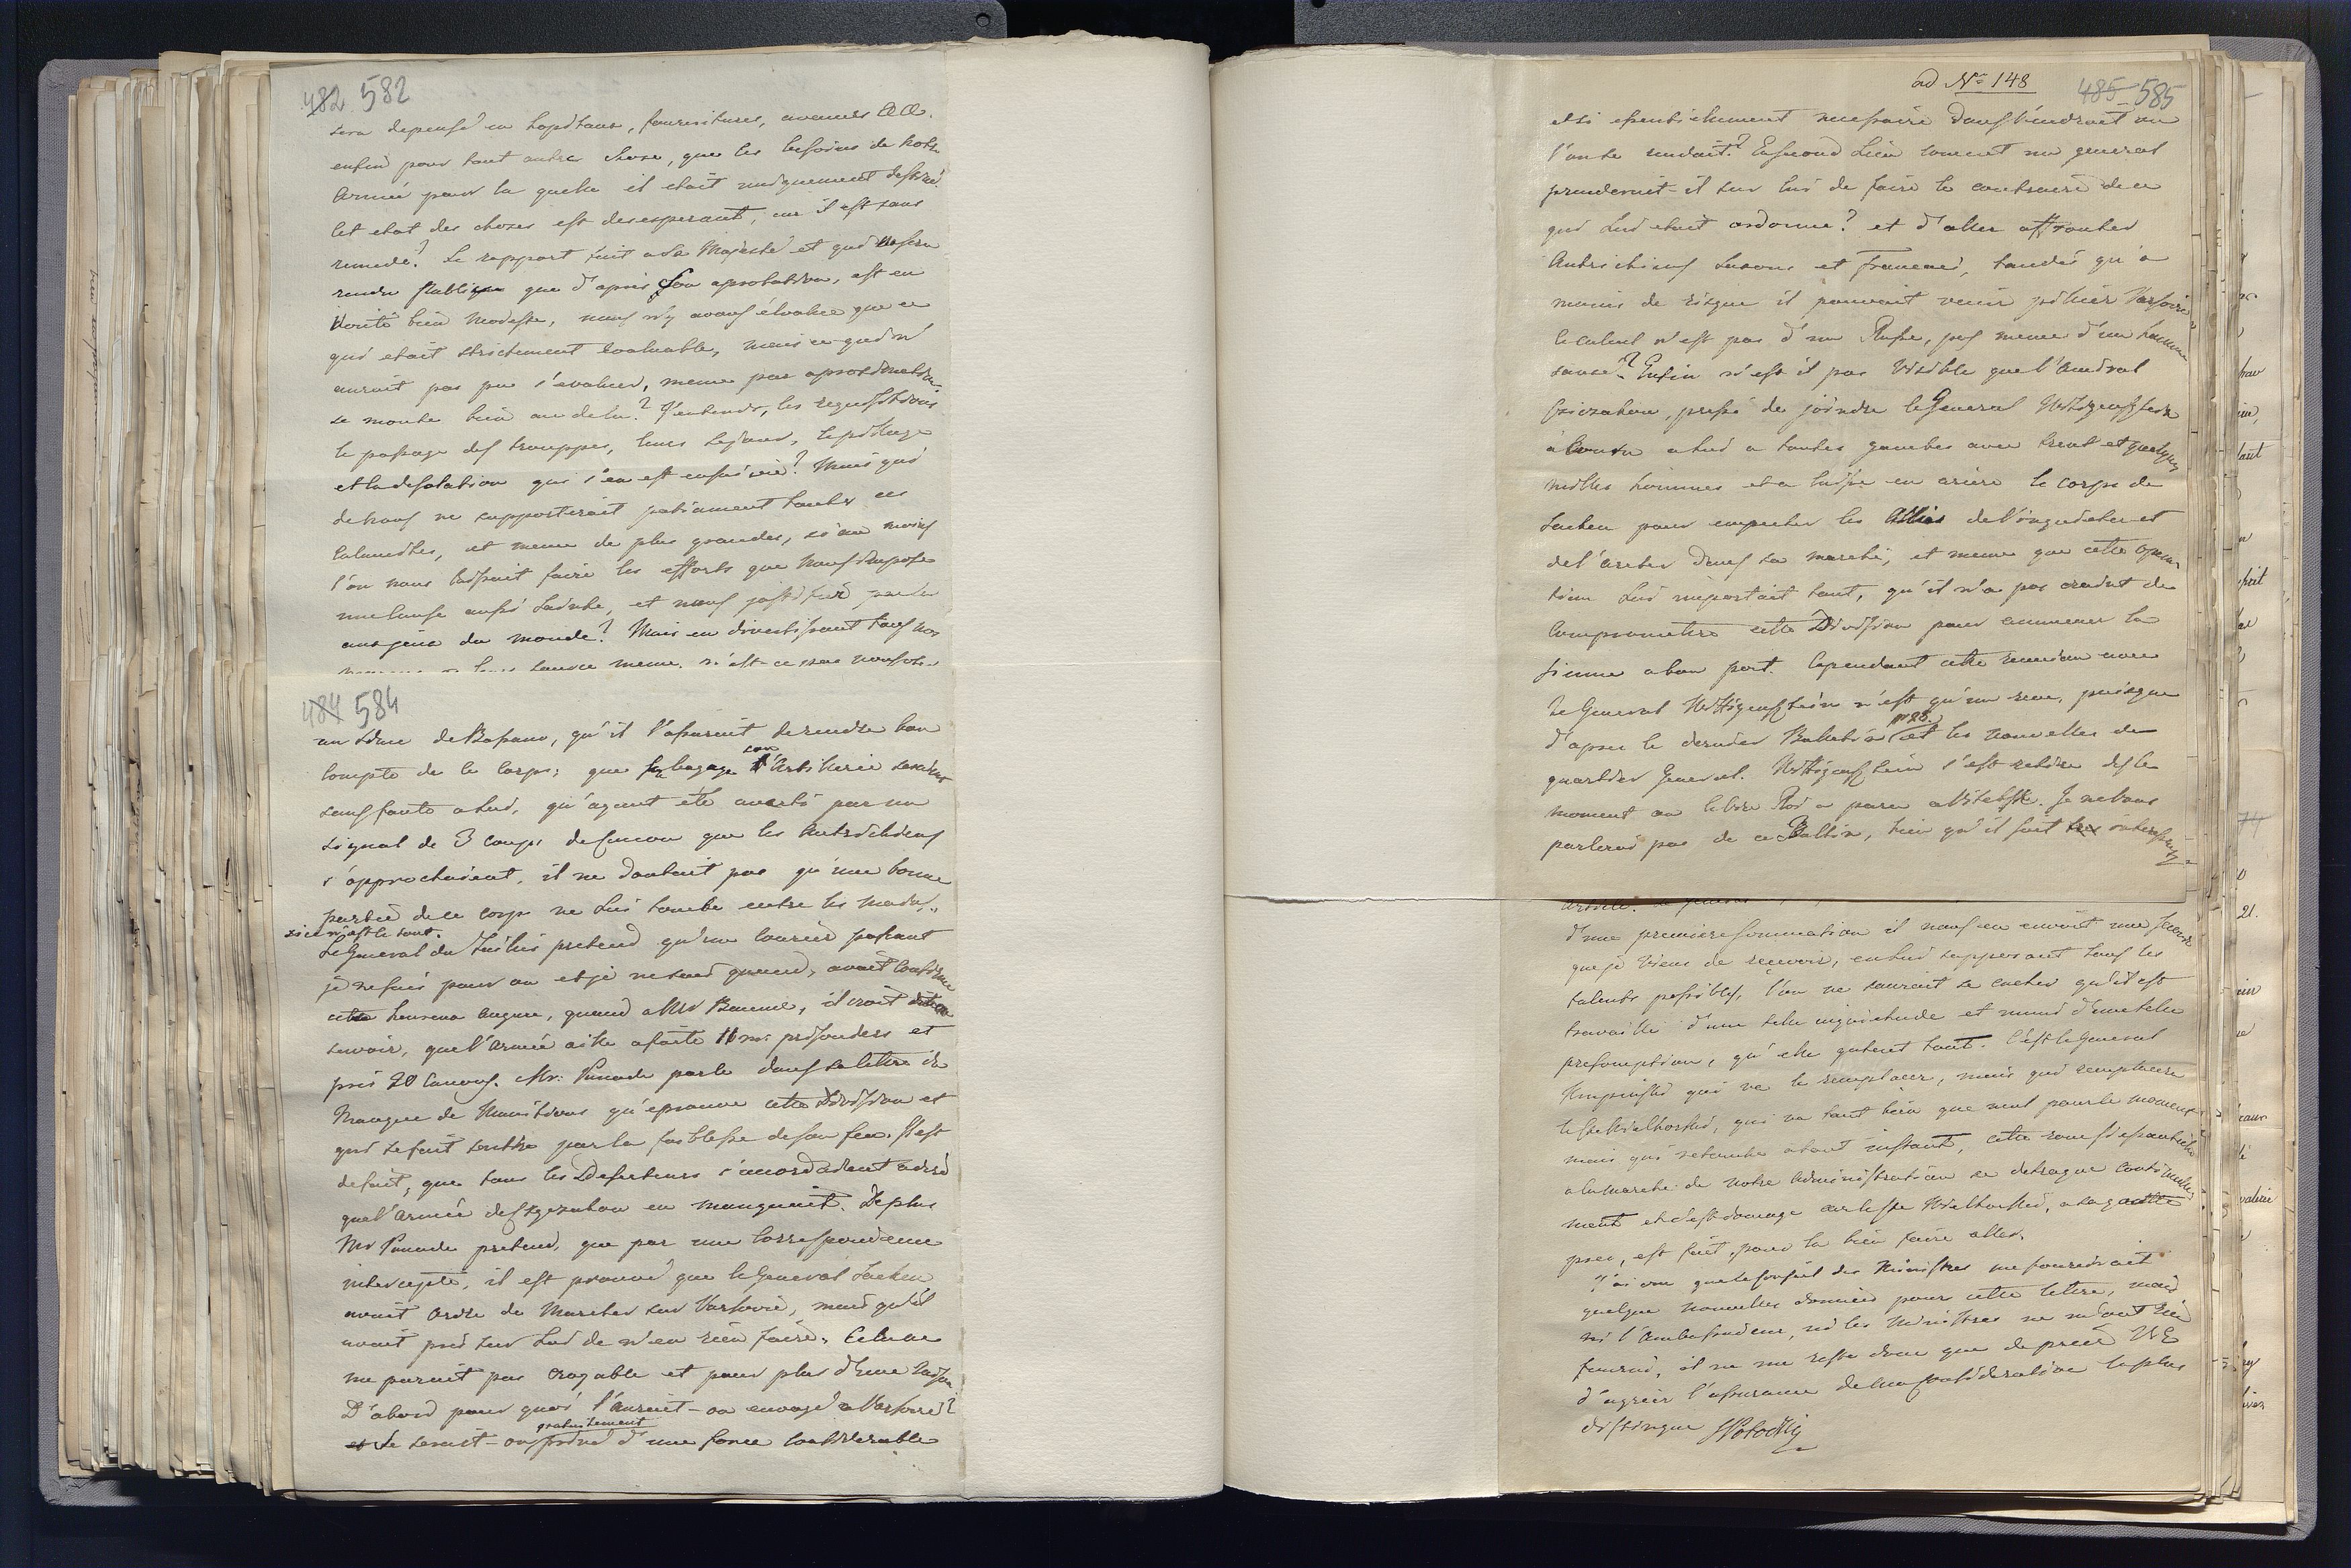 482 582
sera depensé en hopitaux, fournitures, avenues &&.
enfin pour tout autre chose, que les besoins de notre
Armée pour la quelle il etait uniquement destiné.
Cet etat des choses est desesperant, car il est sans
remede? Le rapport fait a Sa Majesté et qui ne sera
rendu que d'apres Son aprobation, est en
verité bien modeste, nous n'y avons évalué que ce
qui etait strictement evaluable, mais ce qui n'
auroit pas pu s'evaluer, meme par aproximation
se monte bien au dela? J'entends, les requisitions
le passage des trouppes, leurs sejours, le pillage
et la desolation qui s'en est ensuivie? Mais qui
de nous ne supporterait patiament toutes ces
calamites, et meme de plus grandes, si au moins
l'on nous laissait faire les efforts que nous impose
une cause aussi sainte, et nous justifier
aux yeux du monde? Mais en divertissant tous nos
484 584
de Bassano, qu'il l'assurait de rendre bon
compte de ce Corps; que bagage son Artillerie
sans faute a lui, qu'ayant été averti par un
signal de 3 coups de canon que les Autrichiens
s'approchaient, il ne doutait pas qu'une bonne
partie de ce corps ne lui tombe entre les mains,
si ce n'est le tout.
Le General du Taillis pretend qu'un courier passant
je ne sais pour ou et je ne sais quand, avait confirmé
cette heureux augure, quand a Mr Bannie, il croit
savoir, que l'Armée aille a faite 11 m. prisonniers et
pris 20 canons. Mr. parle dans sa lettre du
Manque de Munitions qu'eprouve cette Division et
qui se fait sentir par la foiblesse de son feu. Il est
de fait, que tous les Deserteurs s'accordaient a dire
que l'Armée de en manquait. De plus
Mr pretend, que par une Correspondence
interceptée, il est prouvé que le General Sacken
avait ordre de Marcher sur Varsovie, mais qu'il
avait pris sur lui de n'en rien faire. Cela ne
me parait pas croyable et pour plus d'une raison
D'abord pour quoi l'auroit-on envoyé a Varsovie?
gratuitement
et Se seroit-on privé d'une force considerable
ad No 148
485 585
et si essentielement necessaire dans l'endroit ou
l'on se rendait? En second Lieu comment un general
prenderait-il sur lui de faire le contraire de ce
qui Lui etait ordonné? et d'aller affronter
Autrichiens Saxons et Francais, tandis qu'a
moins de risque il pouvait venir piller Varsovie
le calcul n'est pas d'un Russe, pas meme d'un homme
sensé? Enfin n'est il pas visible que l'Amiral
Cziczakow, pressé de joindre le General Wittgensztein
a couru a lui a toutes jambes avec trent et quelques
milles hommes et a laissé en ariere le corps de
Sacken pour empecher les Alliés de l'inquieter et
de l'areter dans sa marche, et meme que cette opera-
tion Lui importait tant, qu'il n'a pas craint de
compromettre cette Division pour emmener la
sienne a bon port. Cependant cette reunion avec
le General Wittgensztein n'est qu'un reve, puisque
d'apres le dernier Bulletin No 28. et les nouvelles du
quartier General. Wittgensztein s'est retiré des le
moment ou a paru a Vitebsk. Je ne Vous
parlerai pas de ce Bulltin, bien qu'il soit interessant
d'une premiere sommation il nous en envoit une
que je viens de recevoir, en lui supposant tous les
talents possibles, l'on ne sauroit se cacher qu'il est
travaillé d'une telle inquietude et muni d'une telle
presomption, qu'elle gaterait tout. C'est le General
qui va le remplacer, mais qui remplacera
le Cte Wielhorski, qui va tant bien que mal pour le moment
mais qui retombe a tout instant, cette roue si essentielle
a la marche de notre Administration se detraque continuelle
ment et c'est domage car le Cte Wielhorski, a la goutte
pres, est fait pour la bien faire aller.
J'ai cru que le Conseil des Ministres me fournirait
quelque nouvelles données pour cette lettre, mais
ni l'Ambassadeur, ni les Ministres ne m'ont rien
fourni, il ne me reste donc que de prier V.E
d'agréer l'assurance de ma consideration la plus
distingue SPotocki